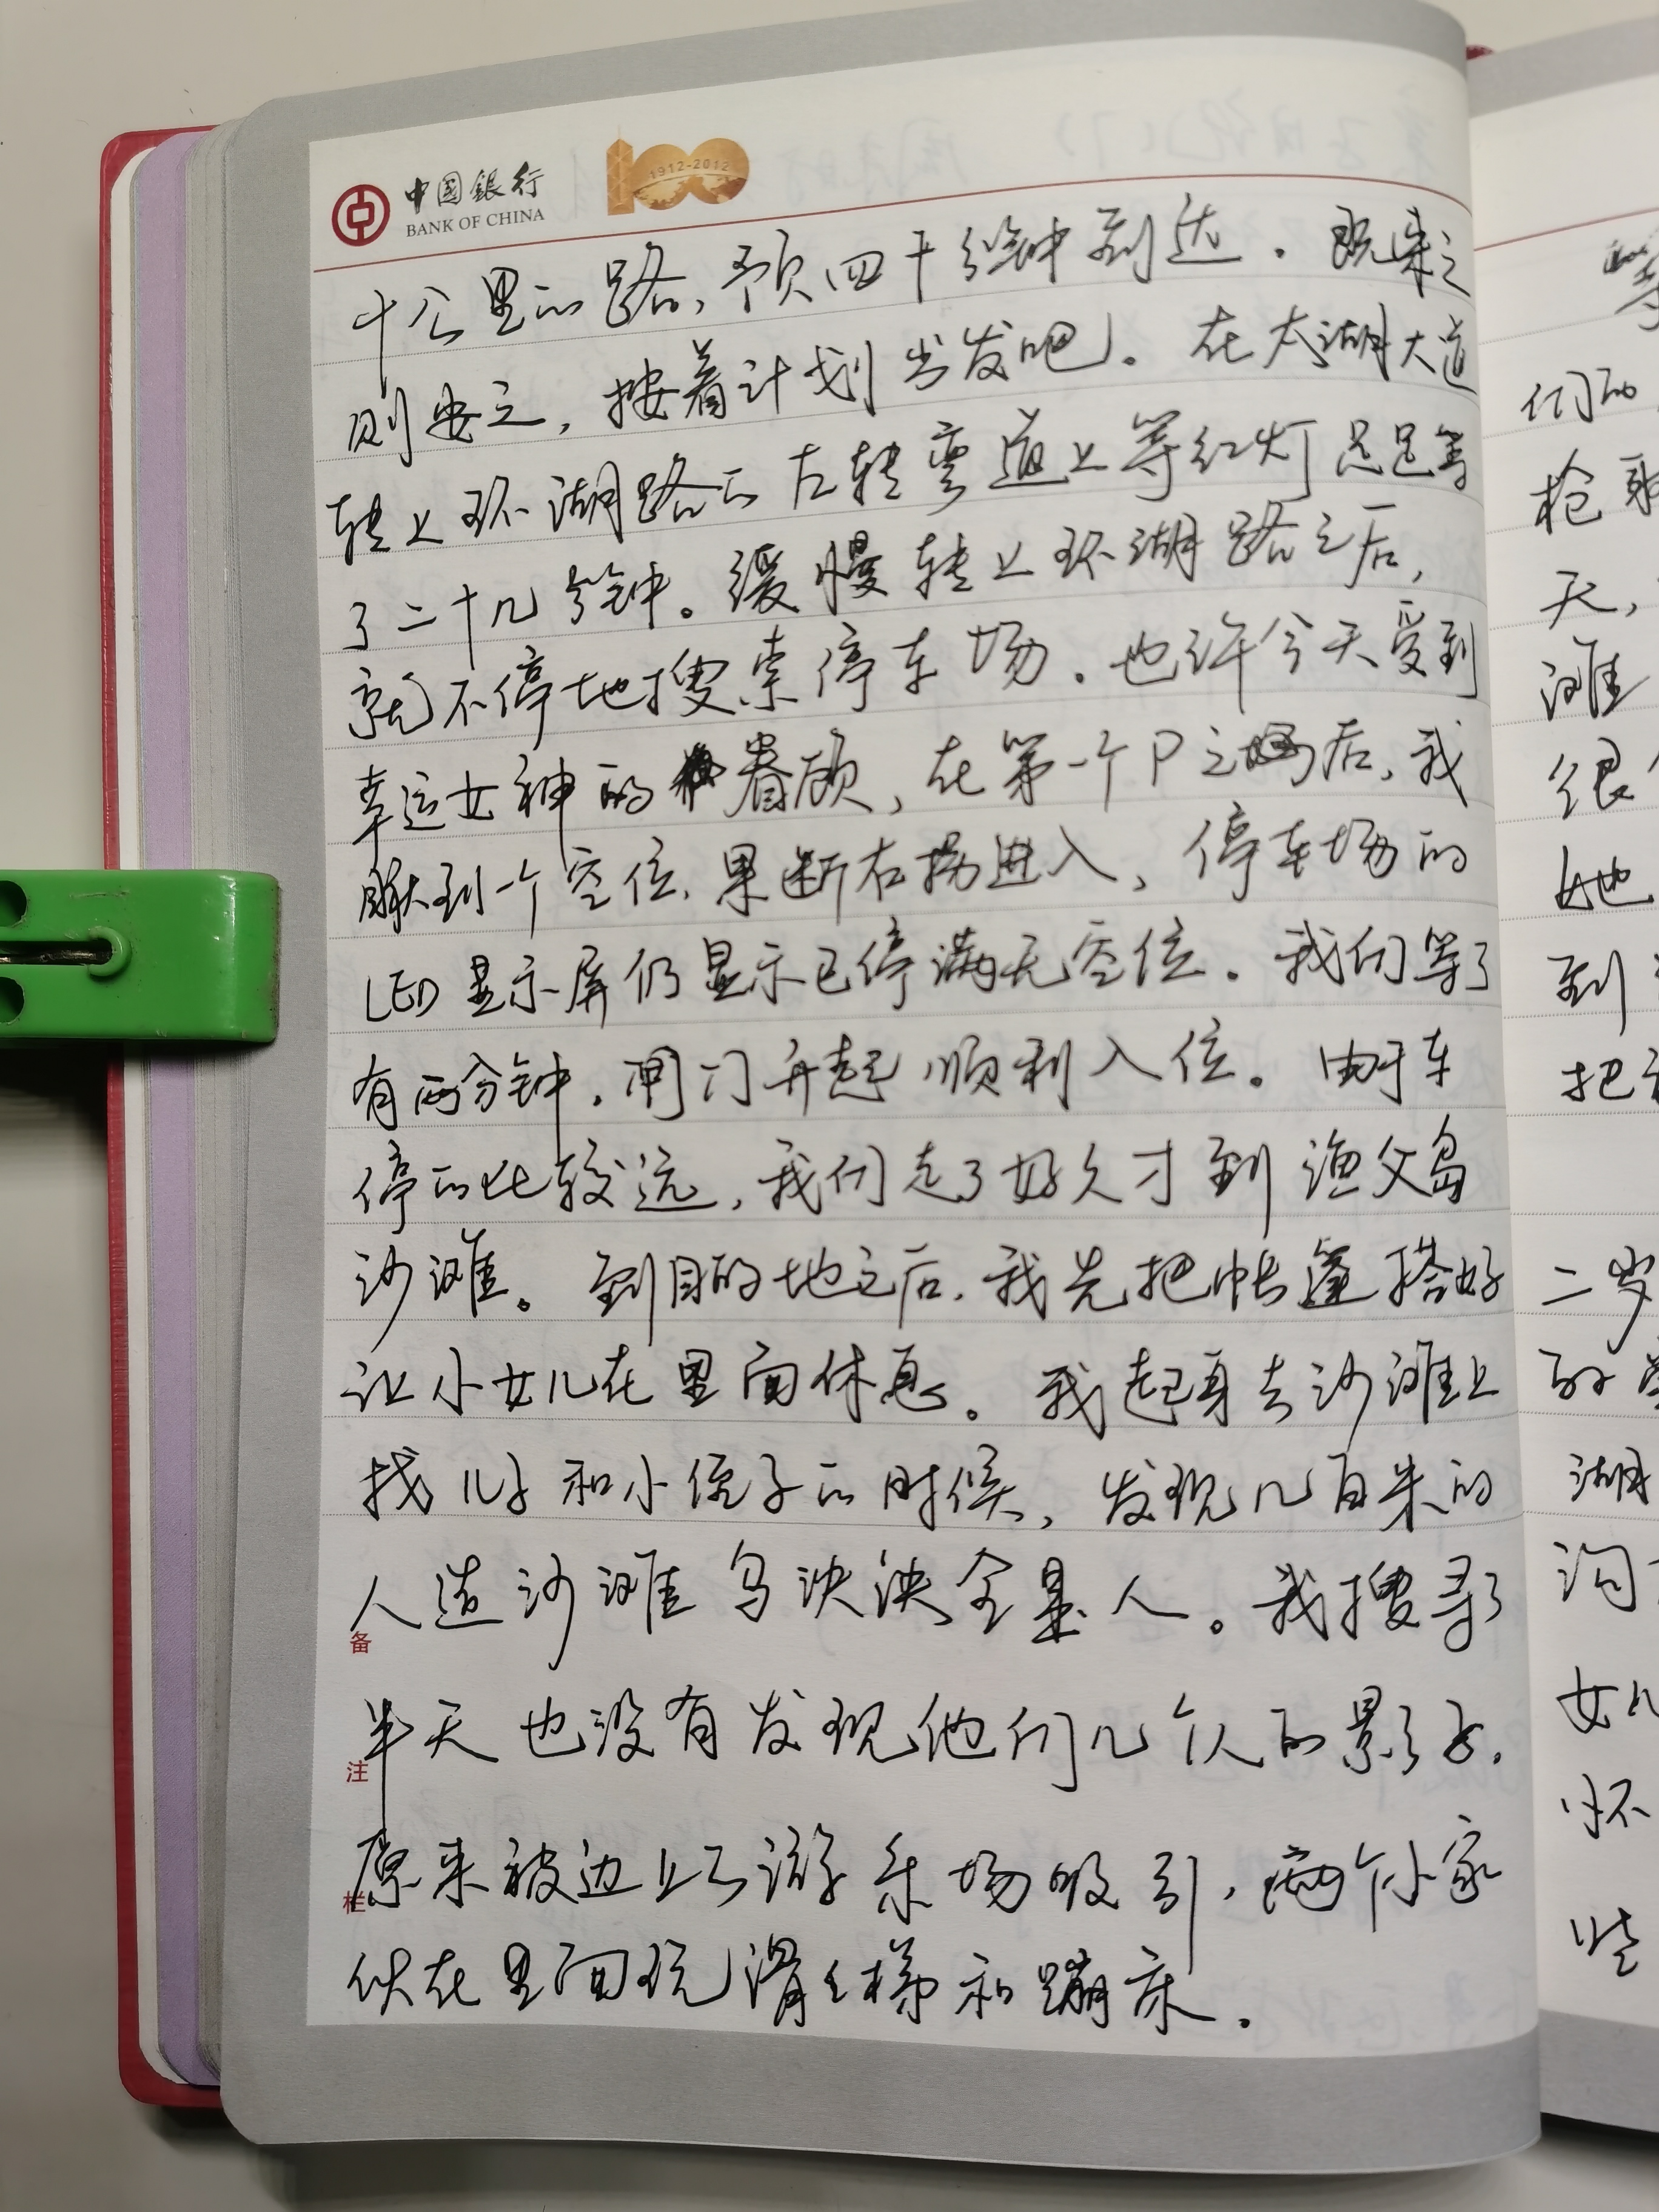 中国银行
BANK OF CHINA
1912-2012
十公里的路，预四十分钟到达。既来之
则安之，按着计划出发吧。在太湖大道
转上环湖路的左转弯道上等红灯足足等
了二十几分钟。缓慢转上环湖路之后，
就不停地搜索停车场。也许今天受到
幸运女神的眷顾，在第一个P之后，我
瞅到一个空位，果断右拐进入，停车场的
LED显示屏仍显示已停满无空位。我们等了
有两分钟，闸门升起顺利入位。由于车
停的比较远，我们走了好久才到渔父岛
沙滩。到目的地之后，我先把帐篷搭好
让小女儿在里面休息。我起身去沙滩上
找儿子和小侄子的时候，发现几百米的
人造沙滩乌泱泱全是人。我搜寻了
备
半天也没有发现他们几个人的影子，
注
原来被边上的游乐场吸引，两个小家
栏
伙在里面玩滑梯和蹦床。
等
们的
枪
天，
滩
很
她
到
把
二岁
的
湖
沟
女儿
怀
些